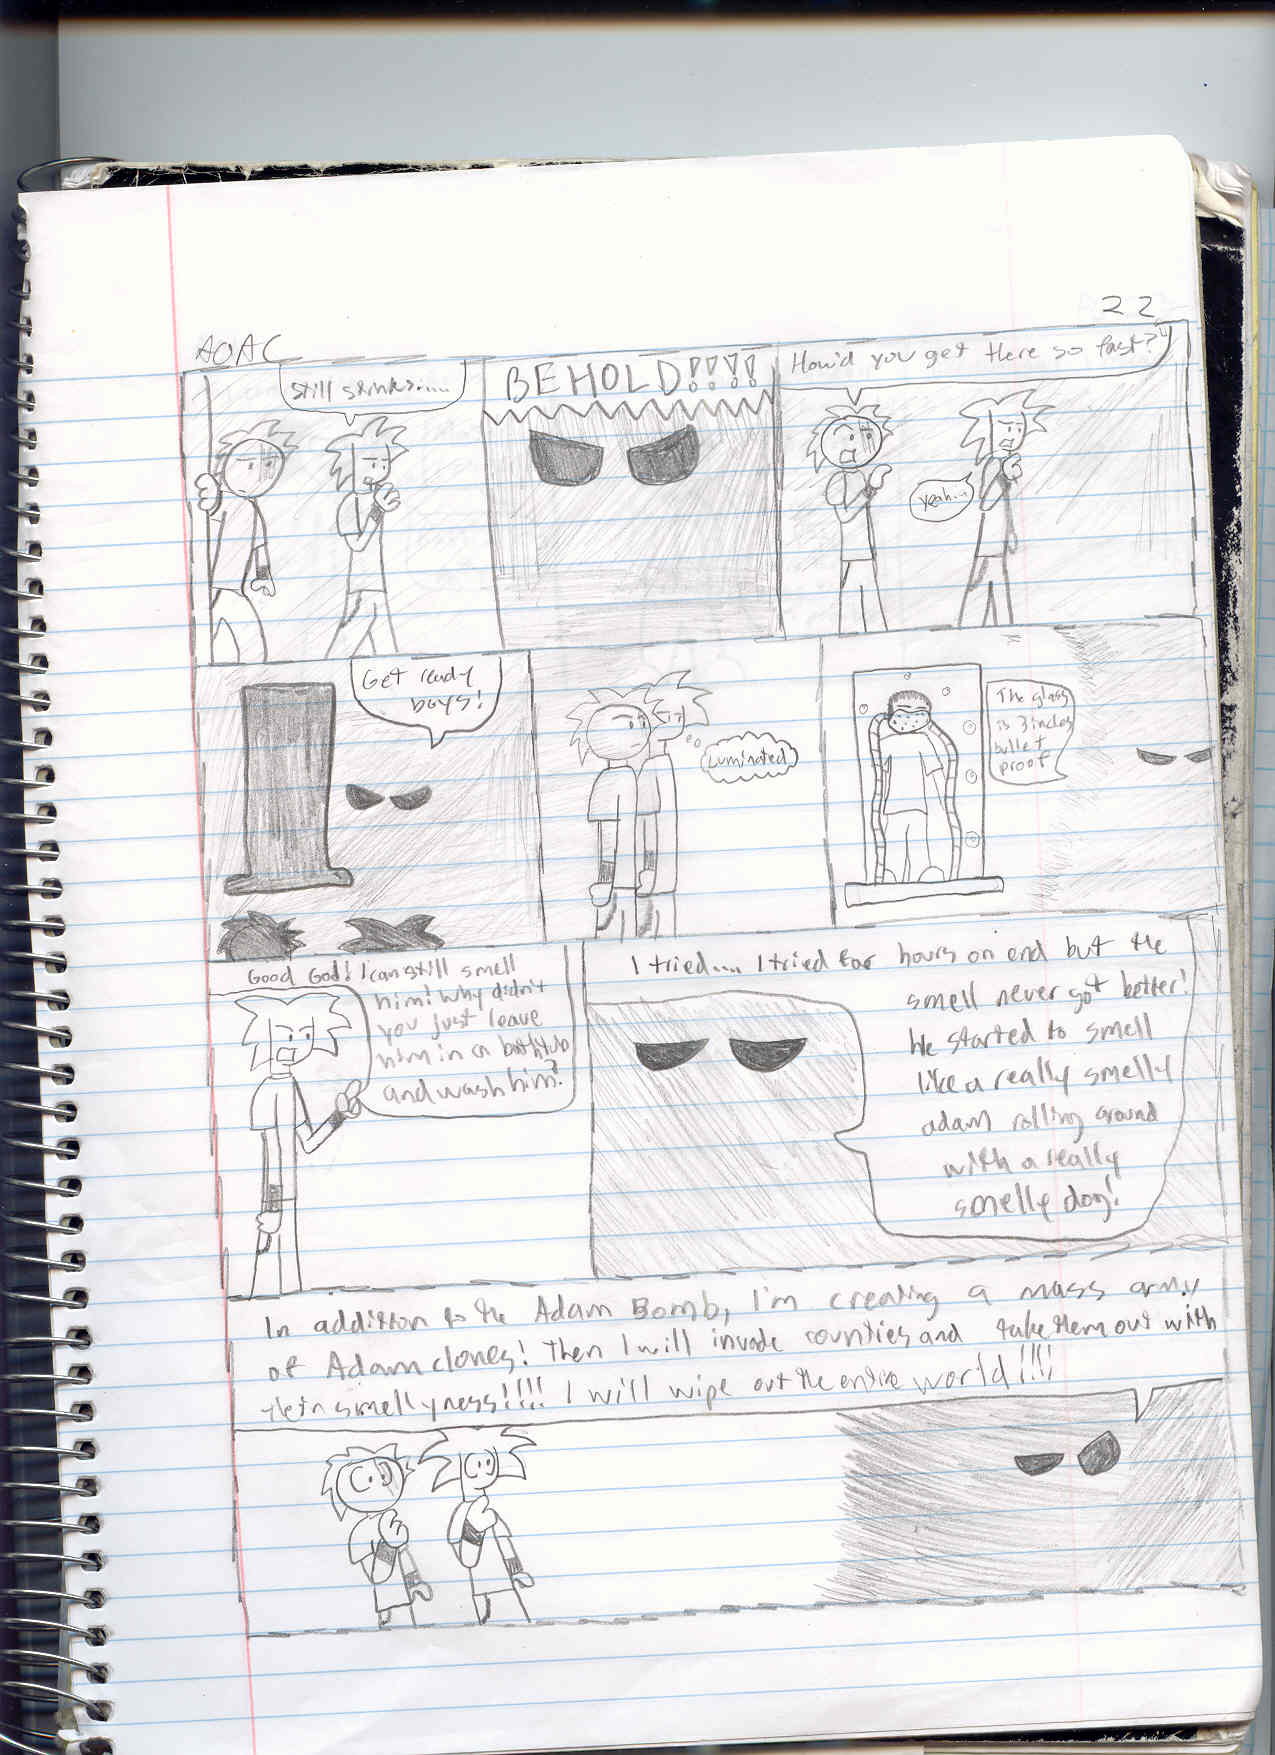 22
AOAC
Still stinks.....
BEHOLD!!!!
How'd you get there so fast?
yeah...
Get ready
boys!
Luminated
The glass
is 3 inches
bullet
proof
Good God! I can still smell
him! Why didn't
you just leave
him in a bathtub
and wash him?
I tried.... I tried for hours on end but the
smell never got better!
He started to smell
like a really smelly
adam rolling around
with a really
smelly dog!
In addition to the Adam Bomb, I'm creating a mass army
of Adam clones! Then I will invade counties and take them out with
smellyness!!!! I will wipe out the entire world!!!!